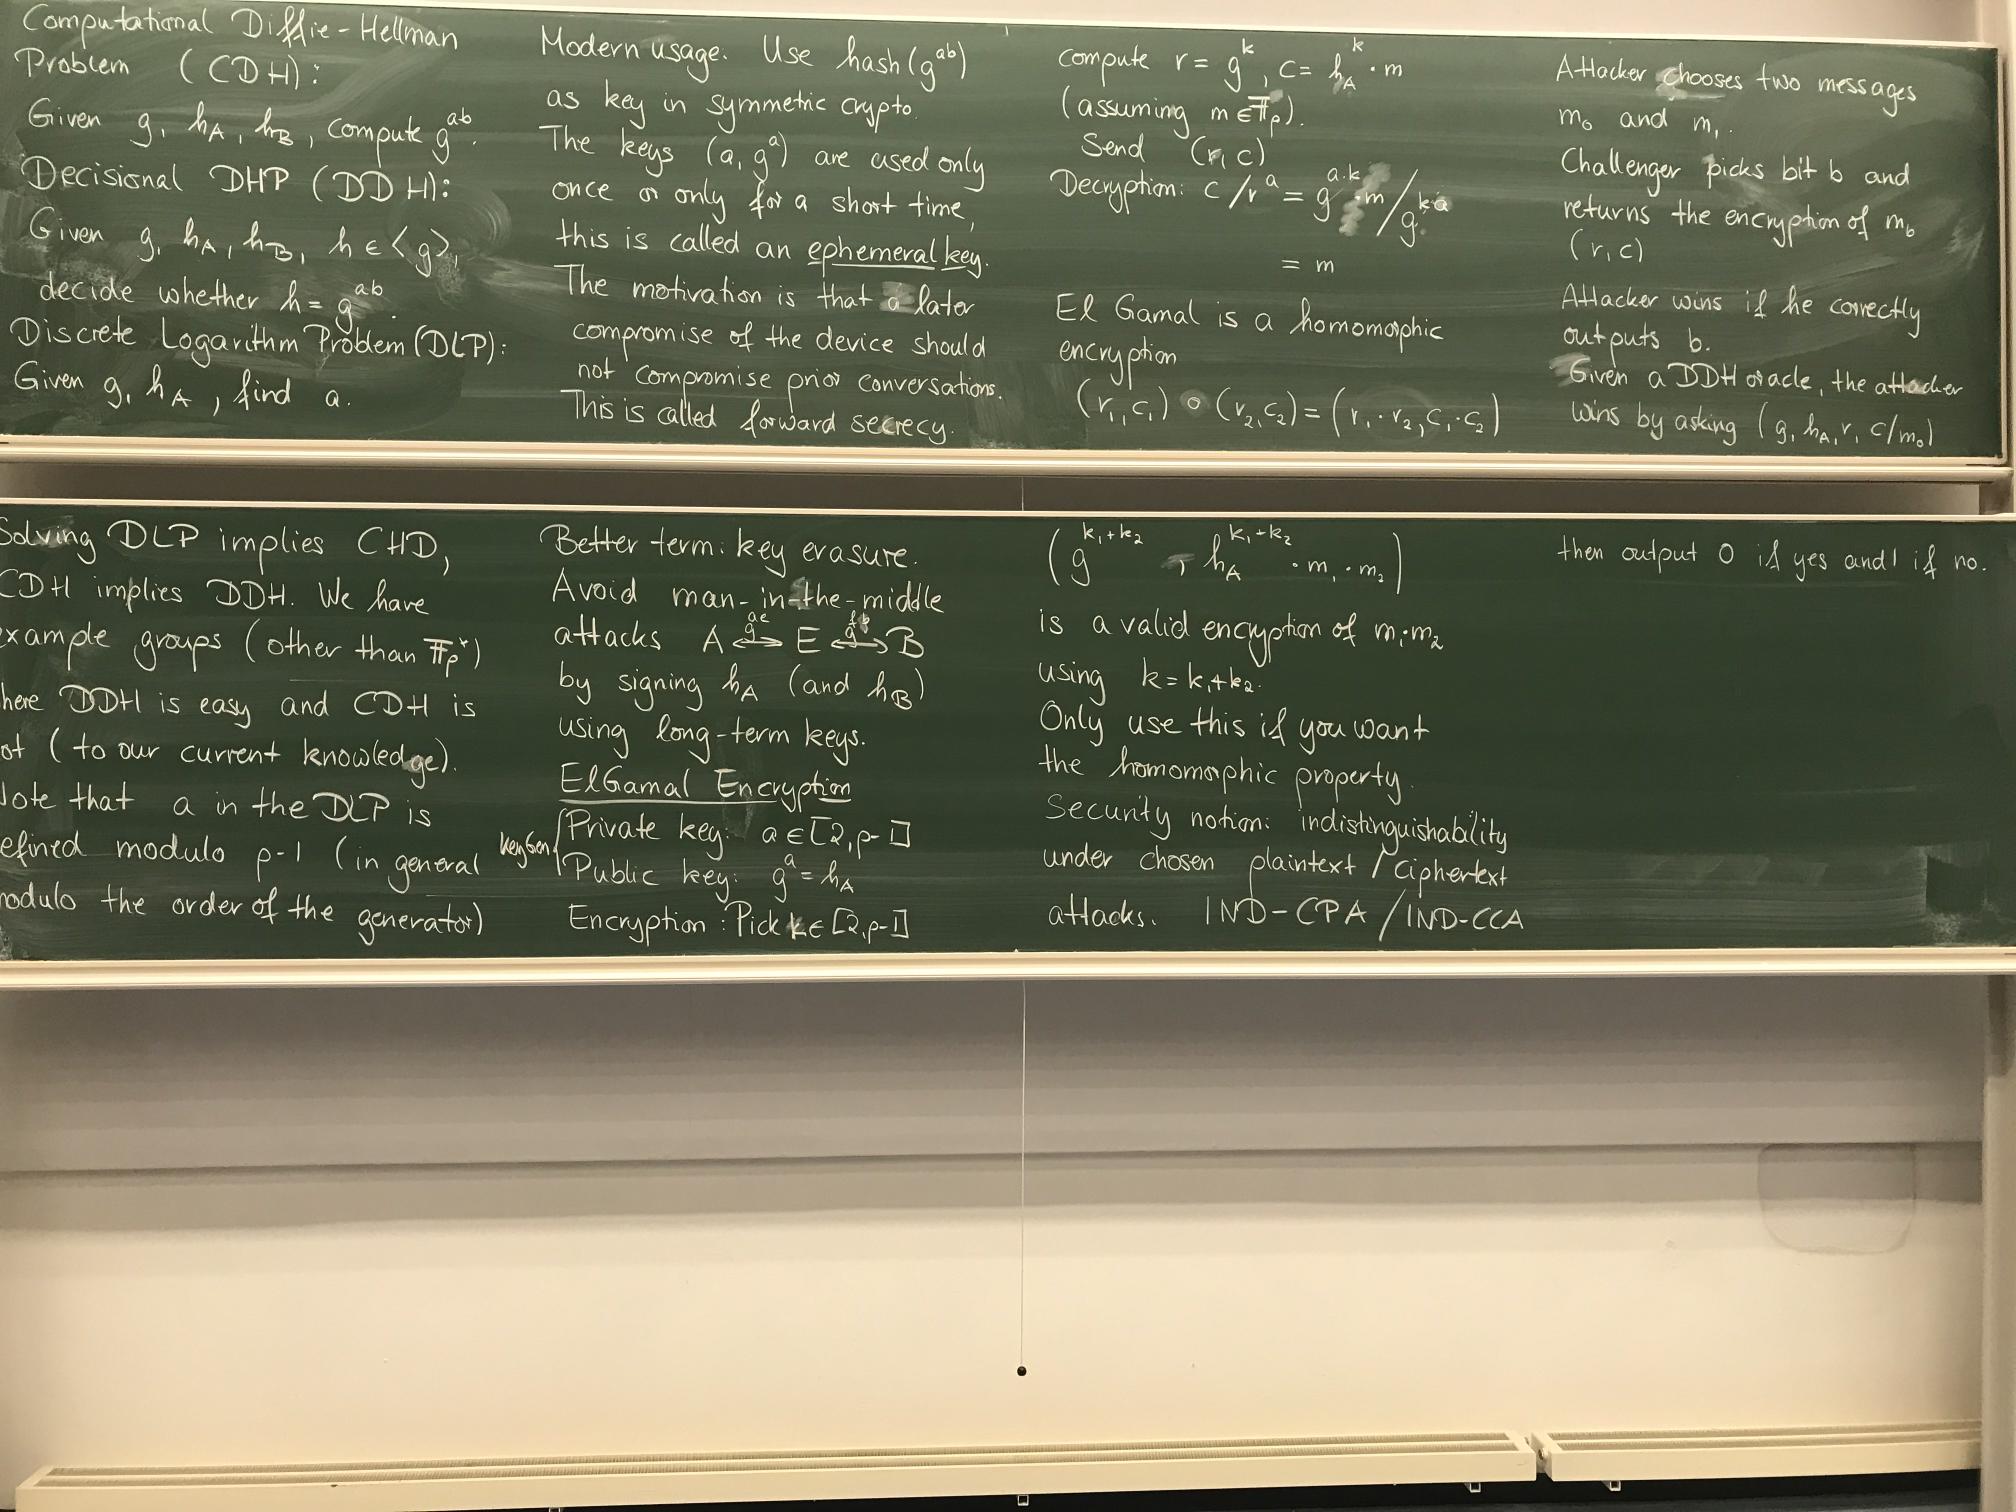 Computational Diffie-Hellman
Problem (CDH):
Given g, h_A, h_B, compute g^ab.
Decisional DHP (DDH):
Given g, h_A, h_B, h ∈ <g>,
decide whether h = g^ab.
Discrete Logarithm Problem (DLP):
Given g, h_A, find a.
Solving DLP implies CHD,
CDH implies DDH. We have
xample groups (other than F_p^*)
here DDH is easy and CDH is
ot (to our current knowledge).
Note that a in the DLP is
efined modulo p-1 (in general
modulo the order of the generator)
Modern usage: Use hash(g^ab)
as key in symmetric crypto.
The keys (a, g^a) are used only
once or only for a short time,
this is called an ephemeral key.
The motivation is that a later
compromise of the device should
not compromise prior conversations.
This is called forward secrecy.
Better term: key erasure.
Avoid man-in-the-middle
attacks A ↔ E ↔ B
by signing h_A (and h_B)
using long-term keys.
ElGamal Encryption
KeyGen { Private key: a ∈ [2, p-1]
Public key: g^a = h_A
Encryption: Pick k ∈ [2, p-1]
compute r = g^k, c = h_A^k · m
(assuming m ∈ F_p).
Send (r, c)
Decryption: c / r^a = g^a·k · m / g^ka
= m
El Gamal is a homomorphic
encryption
(r_1, c_1) ∘ (r_2, c_2) = (r_1 · r_2, c_1 · c_2)
(g^k_1+k_2, h_A^k_1+k_2 · m_1 · m_2)
is a valid encryption of m_1·m_2
using k = k_1+k_2.
Only use this if you want
the homomorphic property.
Security notion: indistinguishability
under chosen plaintext / ciphertext
attacks. IND-CPA / IND-CCA
Attacker chooses two messages
m_0 and m_1.
Challenger picks bit b and
returns the encryption of m_b
(r, c)
Attacker wins if he correctly
outputs b.
Given a DDH oracle, the attacker
wins by asking (g, h_A, r, c/m_0)
then output 0 if yes and 1 if no.